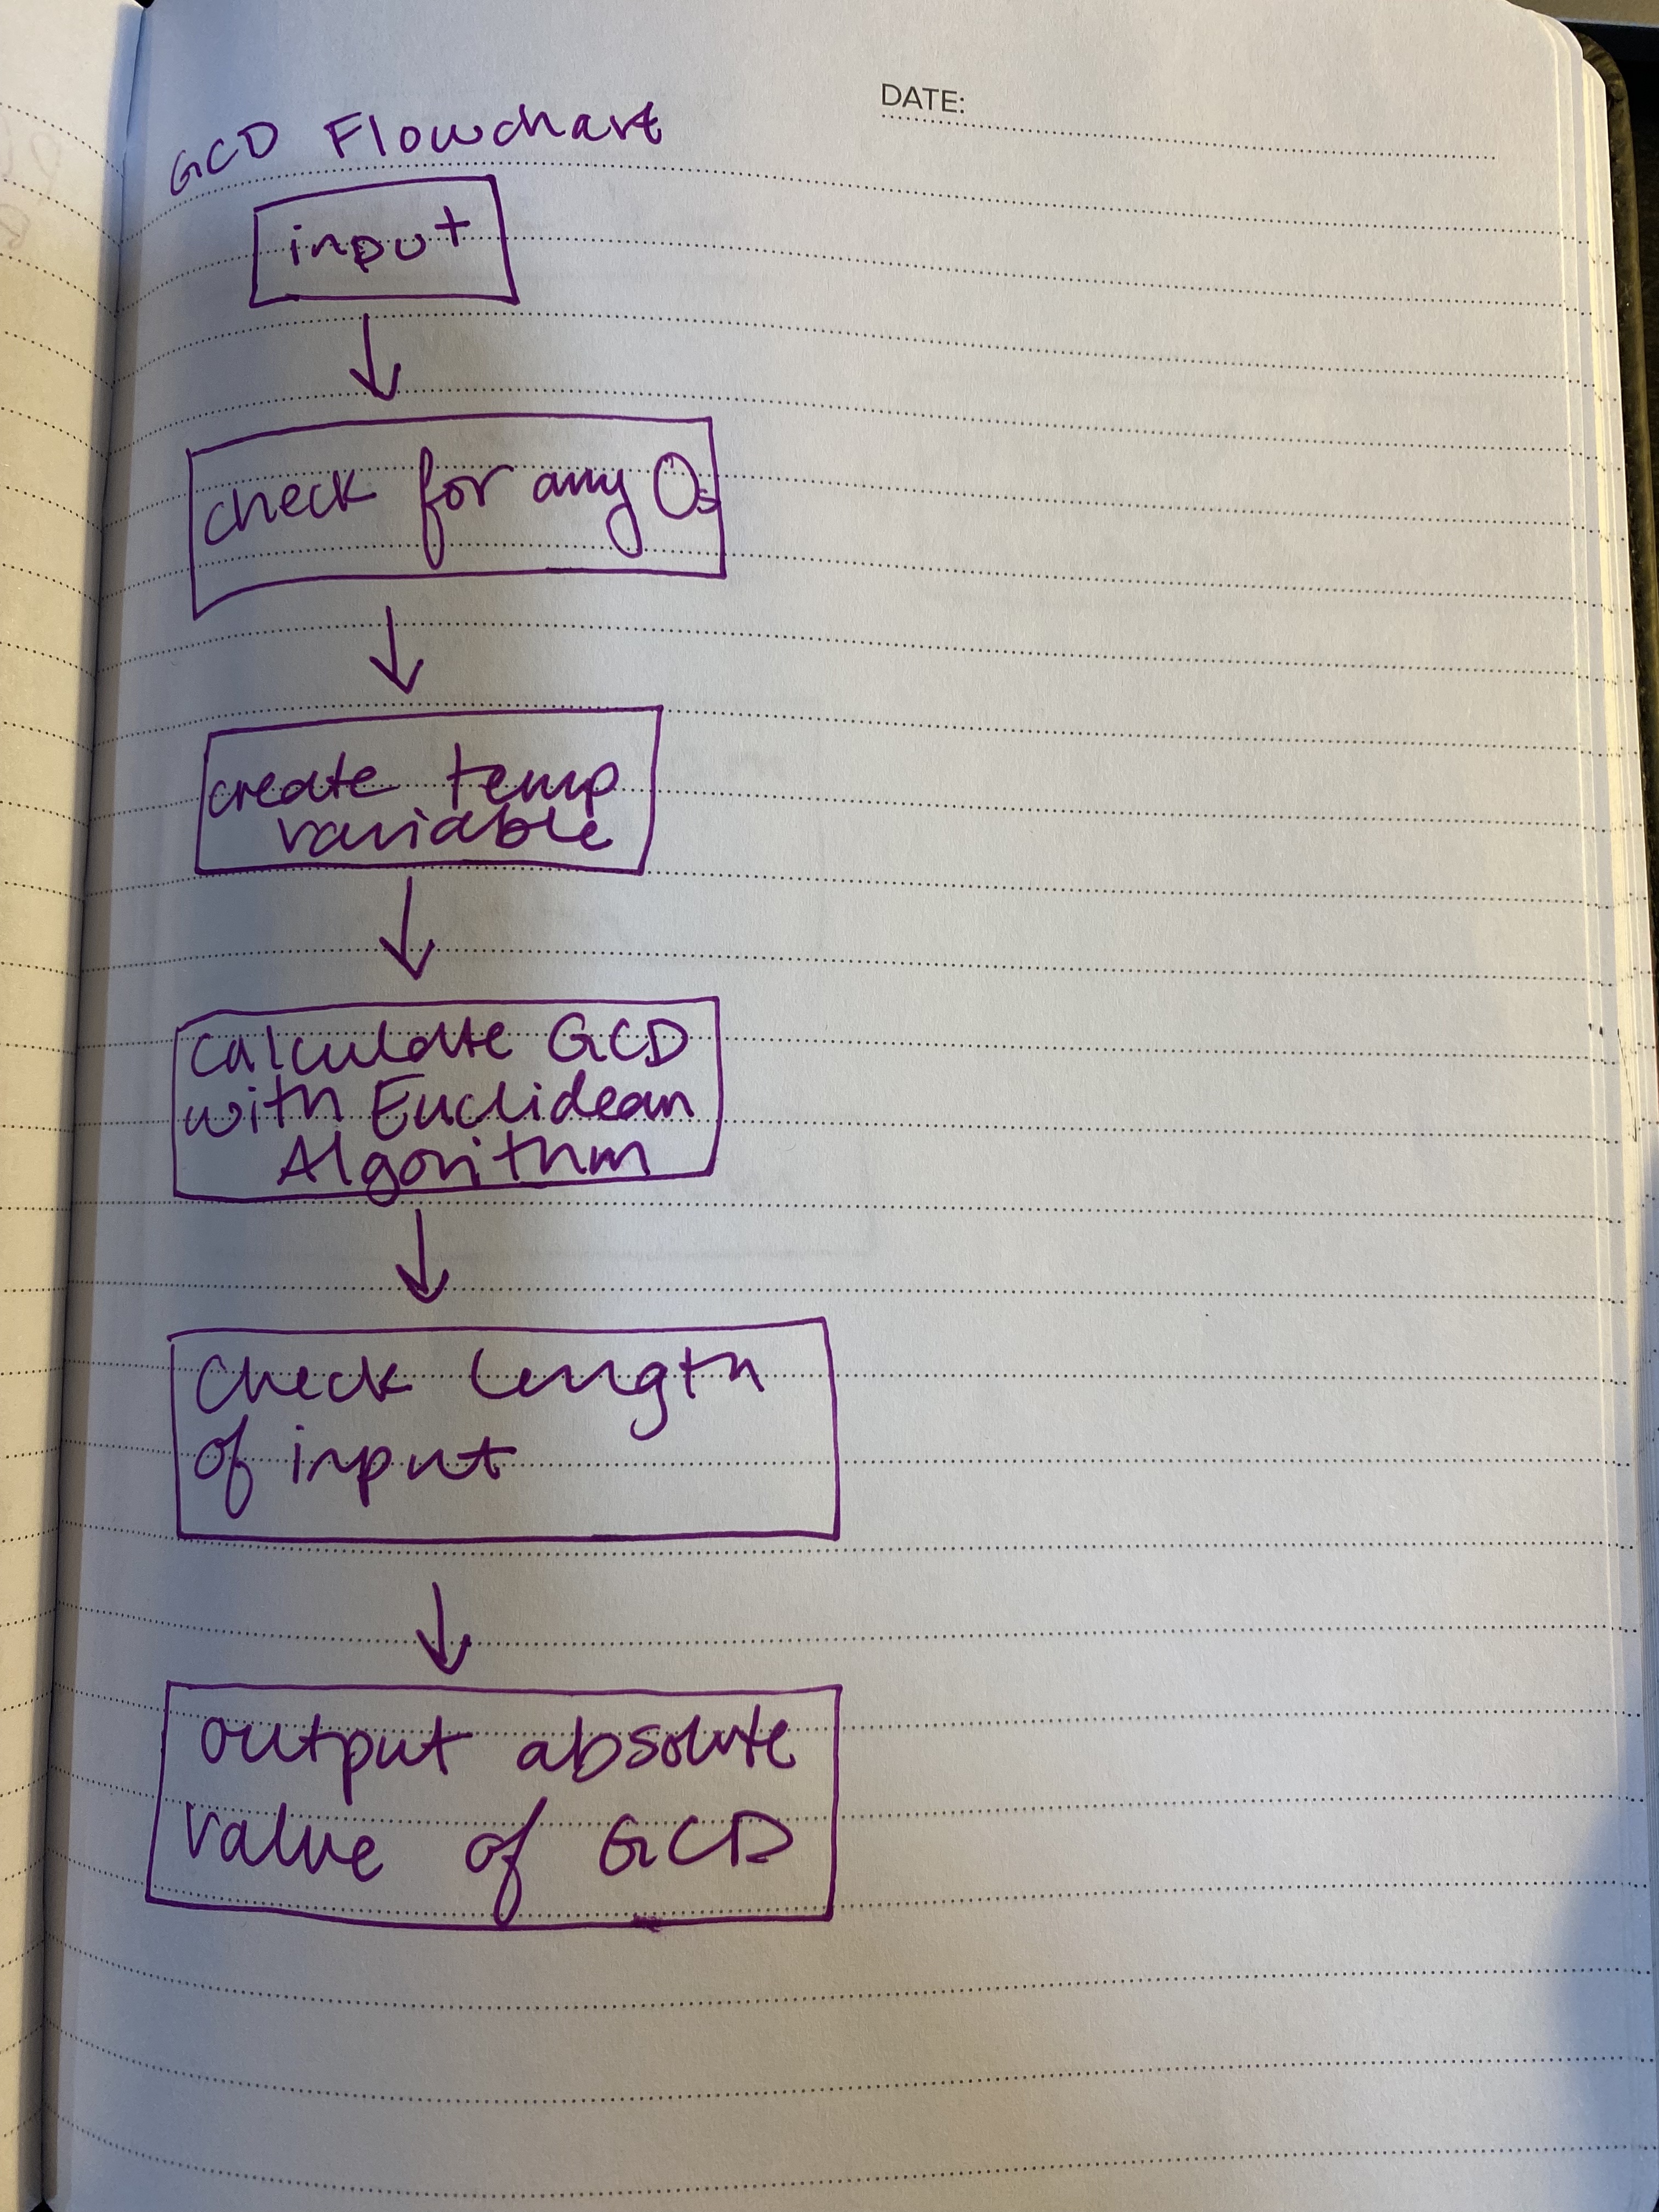 DATE:
GCD Flowchart
input
check for any 0s
create temp
variable
calculate GCD
with Euclidean
Algorithm
Check length
of input
output absolute
value of GCD